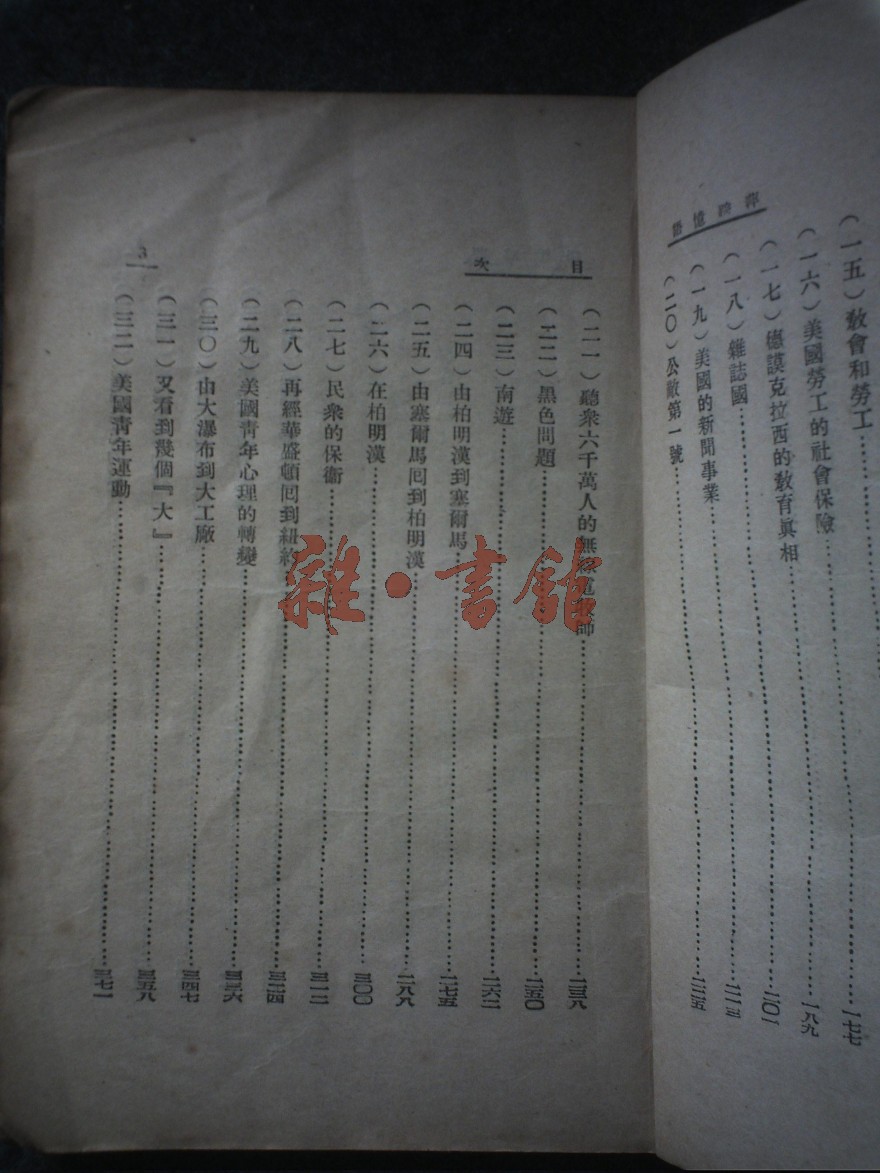 萍踪憶語
(一五)教會和勞工……一七七
(一六)美國勞工的社會保險……一八九
(一七)德謨克拉西的教育眞相……二〇一
(一八)雜誌國……二一三
(一九)美國的新聞事業……二二五
(二〇)公敵第一號……
目次
(二一)聽衆六千萬人的無師……二三八
(二二)黑色問題……二五〇
(二三)南遊……二六二
(二四)由柏明漢到塞爾馬……二七五
(二五)由塞爾馬囘到柏明漢……二八八
(二六)在柏明漢……三〇〇
(二七)民衆的保衞……三一二
(二八)再經華盛頓囘到紐約……三二四
(二九)美國靑年心理的轉變……三三六
(三〇)由大瀑布到大工廠……三四七
(三一)又看到幾個『大』……三五八
(三二)美國靑年運動……三七一
3
雜·書館